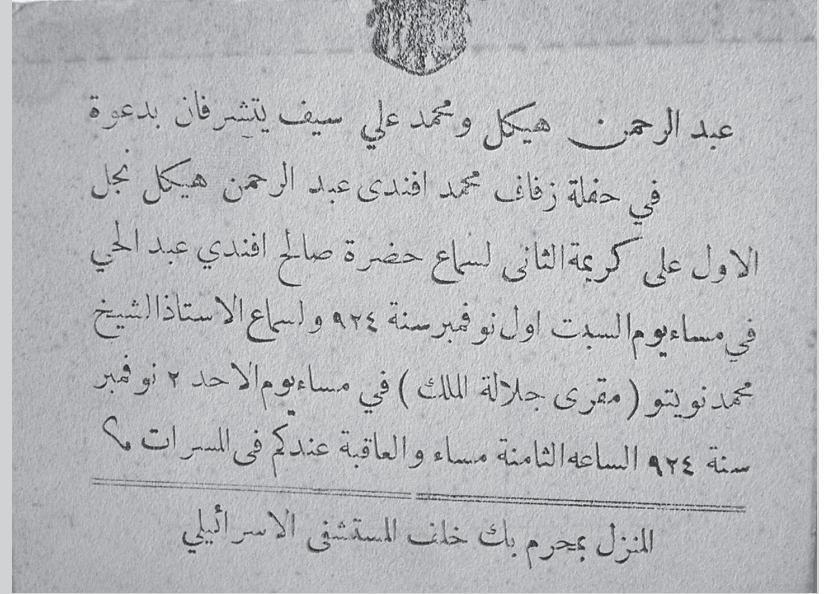 عبد الرحمن هيكل ومحمد علي سيف يتشرفان بدعوة
في حفلة زفاف محمد افندى عبد الرحمن هيكل نجل
الاول على كريمة الثانى لسماع حضرة صالح افندي عبد الحي
في مساء يوم السبت اول نوفمبر سنة ٩٢٤ ولسماع الاستاذ الشيخ
محمد نويتو ( مقرى جلالة الملك ) في مساء يوم الاحد ٢ نوفمبر
سنة ٩٢٤ الساعه الثامنة مساء والعاقبة عندكم فى المسرات
المنزل بمحرم بك خلف المستشفى الاسرائيلي